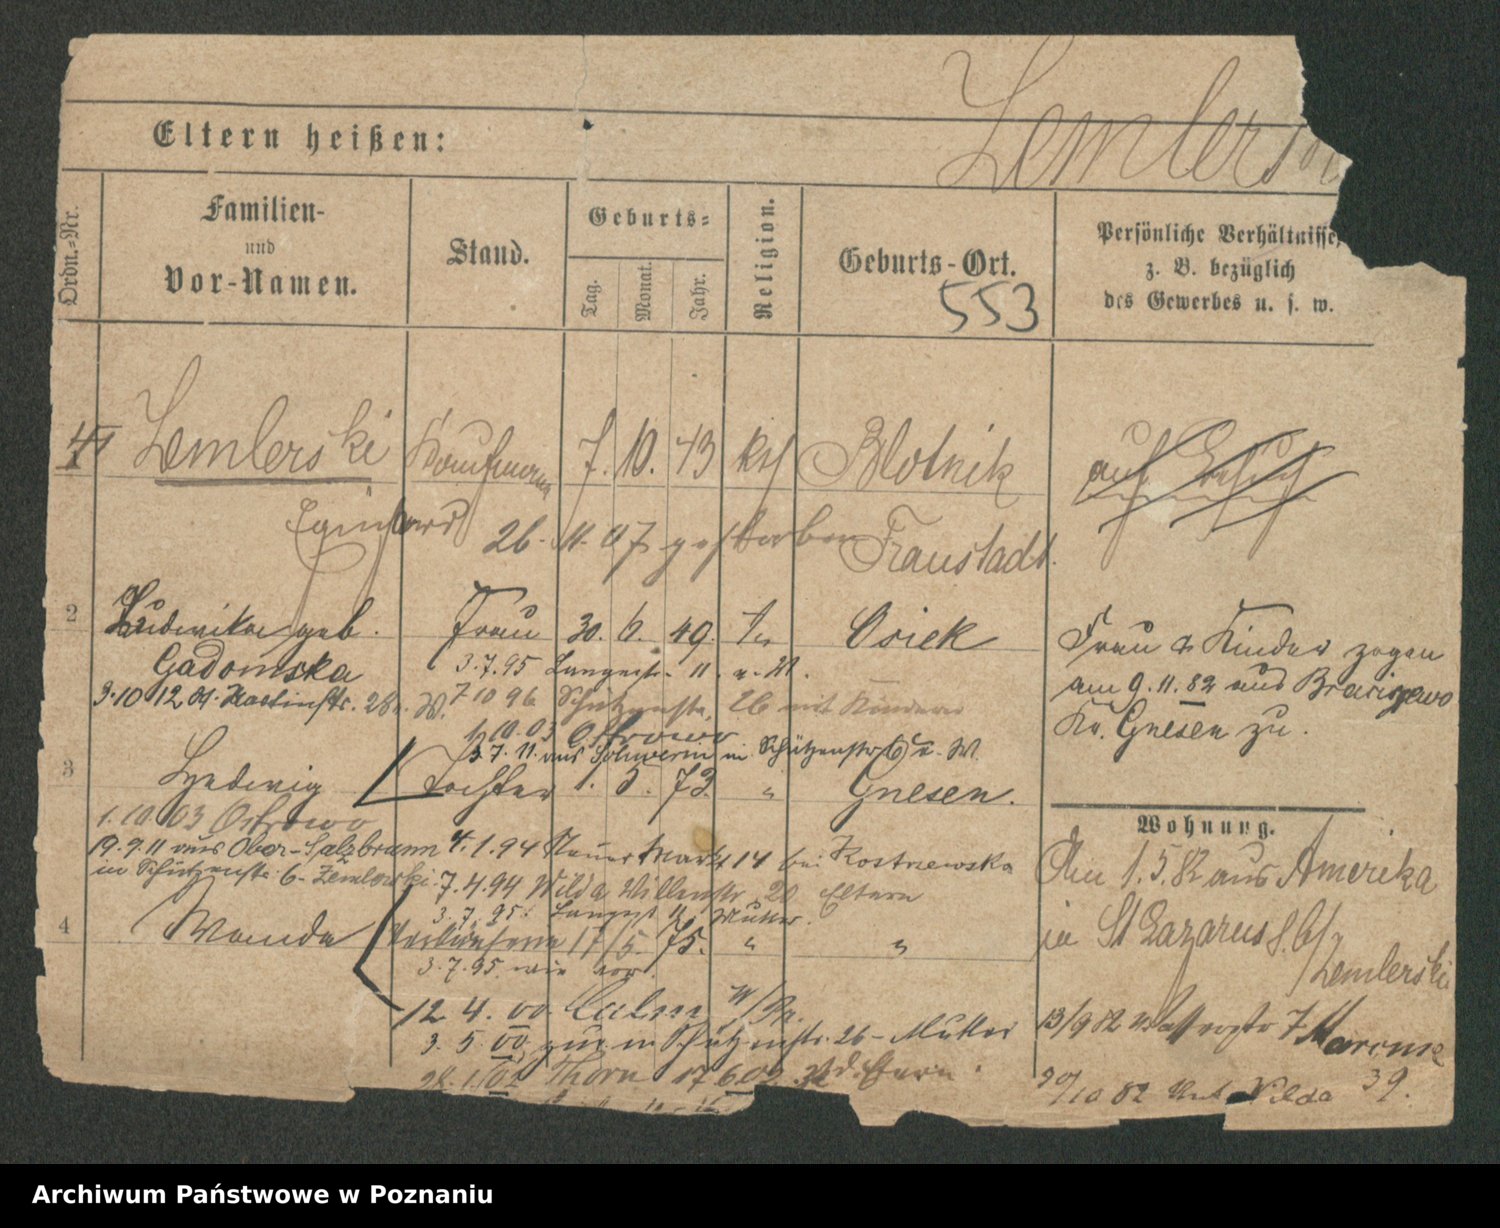 Eltern heißen:
Zemlerski
Ordn.-Nr.
Familien-
und
Vor-Namen.
Stand.
Geburts-
Tag.
Monat.
Jahr.
Religion.
Geburts-Ort.
553
Persönliche Verhältnisse,
z. B. bezüglich
des Gewerbes u. s. w.
Zemlerski Kaufmann 7. 10. 43 kth Blotnik
26. 11. 07 gestorben Fraustadt.
2 Ludwika geb. Frau 30. 6. 49. Osiek
Gadomska 3.7.95 Langestr. 11
3.10 12.01. 28 W. 7 10 96 Schützenstr. 26 mit Kindern
1.10.03 Ostrowo
3.7.11. aus Schwerin in Schützenstr. 6 W.
3 Hedwig Tochter 1. 5. 73. " Gnesen.
1.10.03 Ostrowo
19.9.11 aus Ober-Salzbrunn 4.1.94 Neuer Markt 14 bei Kostrzewska
in Schützenstr. 6- 7.4.94 Wilda 20 Eltern
3.7.95: Langest 11 Mutter.
4 Wanda Verkäuferin 17/5. 75. " "
3.7.95 wie vor.
12. 4. 00 Culm W/Pr.
3. 5. 00 zur. in Schützenstr. 26 - Mutter
Thorn 17 6 02
Frau & Kinder zogen
am 9.11.82 aus
Kr. Gnesen zu.
Wohnung.
Am 1.5.82 aus Amerika
in St Lazarus
Zemlerski
13/9 82
30/10 82 Wilda 39.
Archiwum Państwowe w Poznaniu